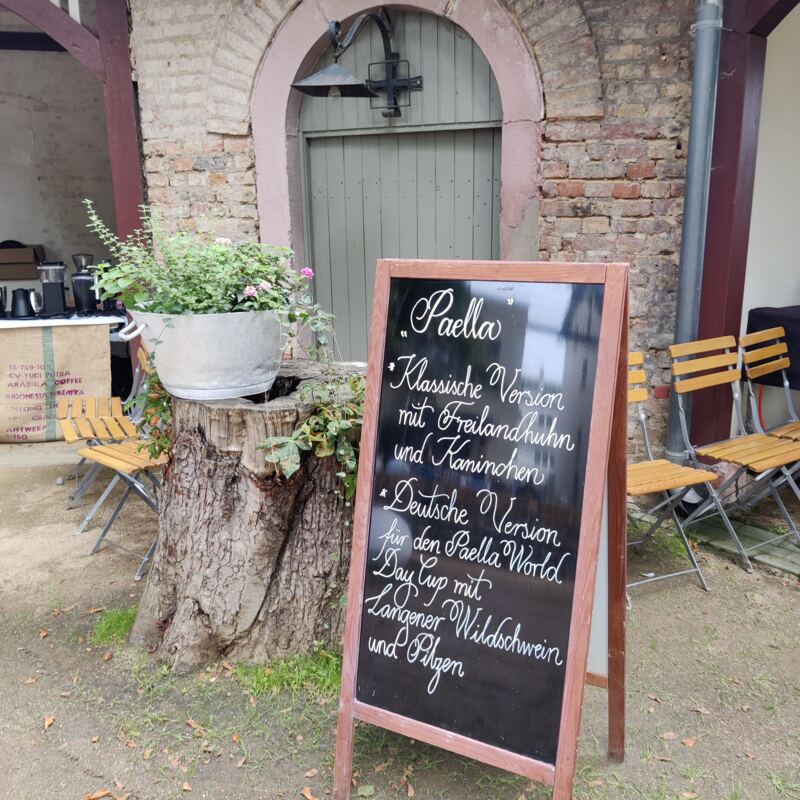 „Paella”
* Klassische Version
mit Freilandhuhn
und Kaninchen
* Deutsche Version
für den Paella World
Day Cup mit
Langener Wildschwein
und Pilzen
ARABIC A COFFEE
INDONESIA
ANTWERP